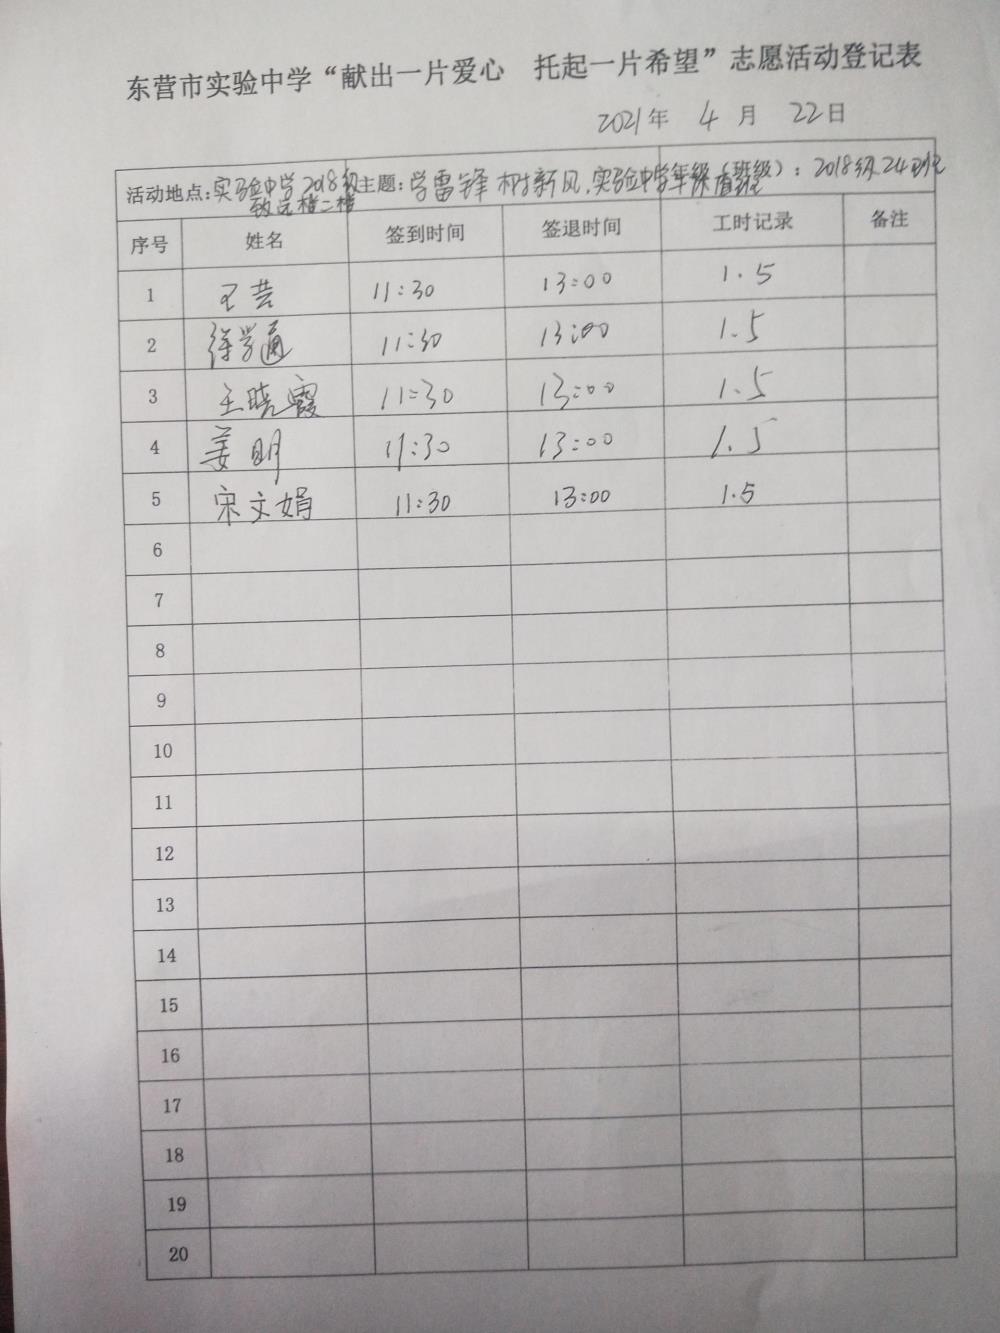 东营市实验中学“献出一片爱心 托起一片希望”志愿活动登记表
2021年 4 月 22日
活动地点:实验中学2018级 主题:学雷锋树新风,实验中学 年级(班级):2018级24班
楼二楼 值班
序号 姓名 签到时间 签退时间 工时记录 备注
1 王芸 11:30 13:00 1.5
2 徐学通 11:30 13:00 1.5
3 王晓霞 11:30 13:00 1.5
4 姜明 11:30 13:00 1.5
5 宋文娟 11:30 13:00 1.5
6
7
8
9
10
11
12
13
14
15
16
17
18
19
20